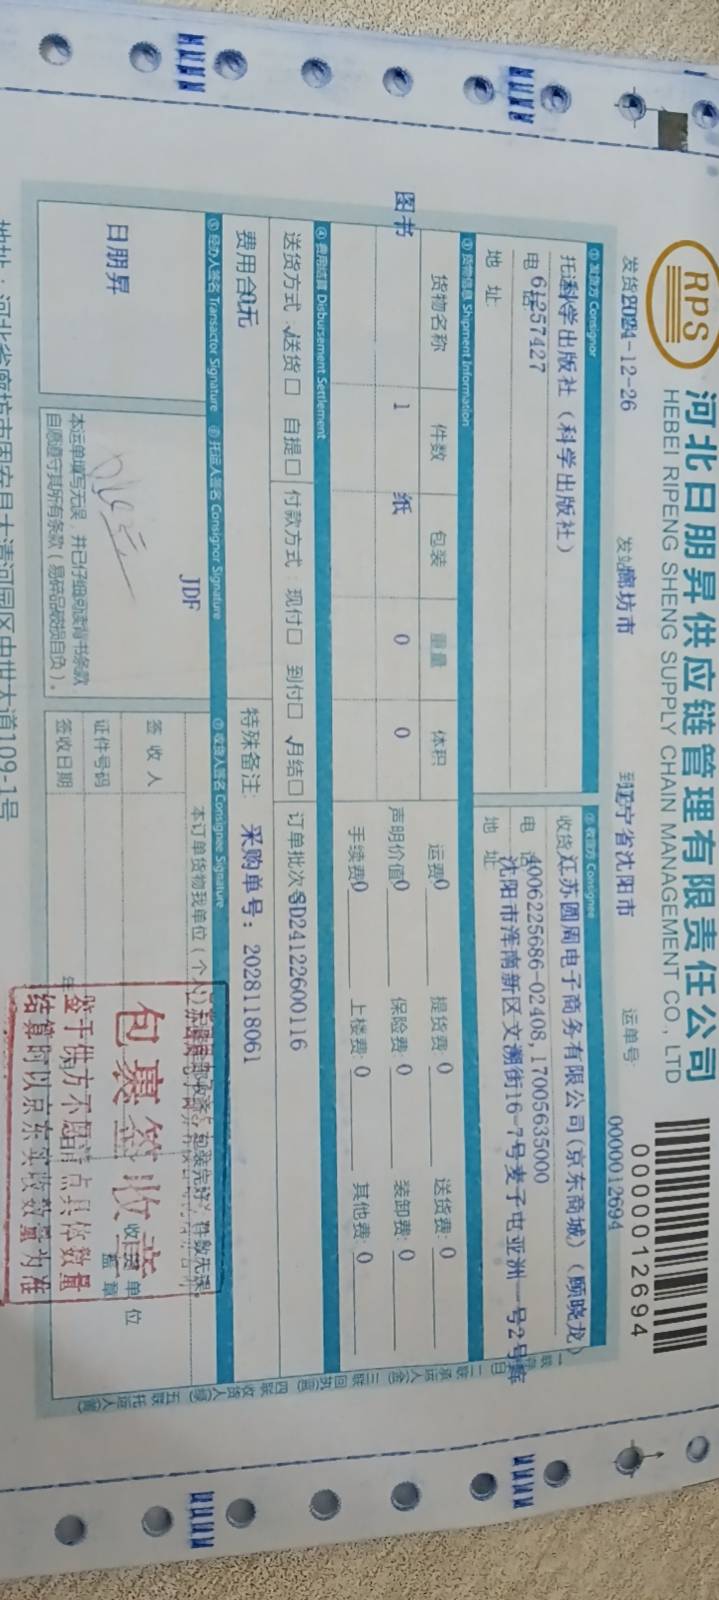 RPS
河北日朋昇供应链管理有限责任公司
HEBEI RIPENG SHENG SUPPLY CHAIN MANAGEMENT CO., LTD
0000012694
发货2024-12-26
发站廊坊市
到辽宁省沈阳市
运单号
0000012694
① 发货方 Consignor
托运科学出版社（科学出版社）
电话61257427
地 址
② 收货方 Consignee
收货江苏圆周电子商务有限公司(京东商城)（顾晓龙）
电话4006225686-02408,17005635000
地 址沈阳市浑南新区文溯街16-7号麦子屯亚洲一号2号库
③ 货物信息 Shipment Information
货物名称 件数 包装 重量 体积
图书 1 纸 0 0
运费0 提货费: 0 送货费: 0
声明价值0 保险费: 0 装卸费: 0
手续费0 上楼费: 0 其他费: 0
④ 费用结算 Disbursement Settlement
送货方式:√送货□ 自提□ 付款方式:现付□ 到付□ √月结□ 订单批次号SD24122600116
费用合0元
特殊备注: 采购单号: 2028118061
⑤ 经办人签名 Transactor Signature ⑥ 托运人签名 Consignor Signature
⑦ 收货人签名 Consignee Signature
日朋昇
JDF
本运单填写无误，并已仔细阅读背书条款
自愿遵守其所有条款（易碎品破损自负）。
本订单货物我单位（个人）
包装完好，件数无误。
签 收 人
证件号码
签收日期
年
收货单位
盖 章
包裹签收章
鉴于供方不随清点具体数量
结算时以京东实收数量为准
地址:河北省廊坊市固安县大清河园区中世大道109-1号